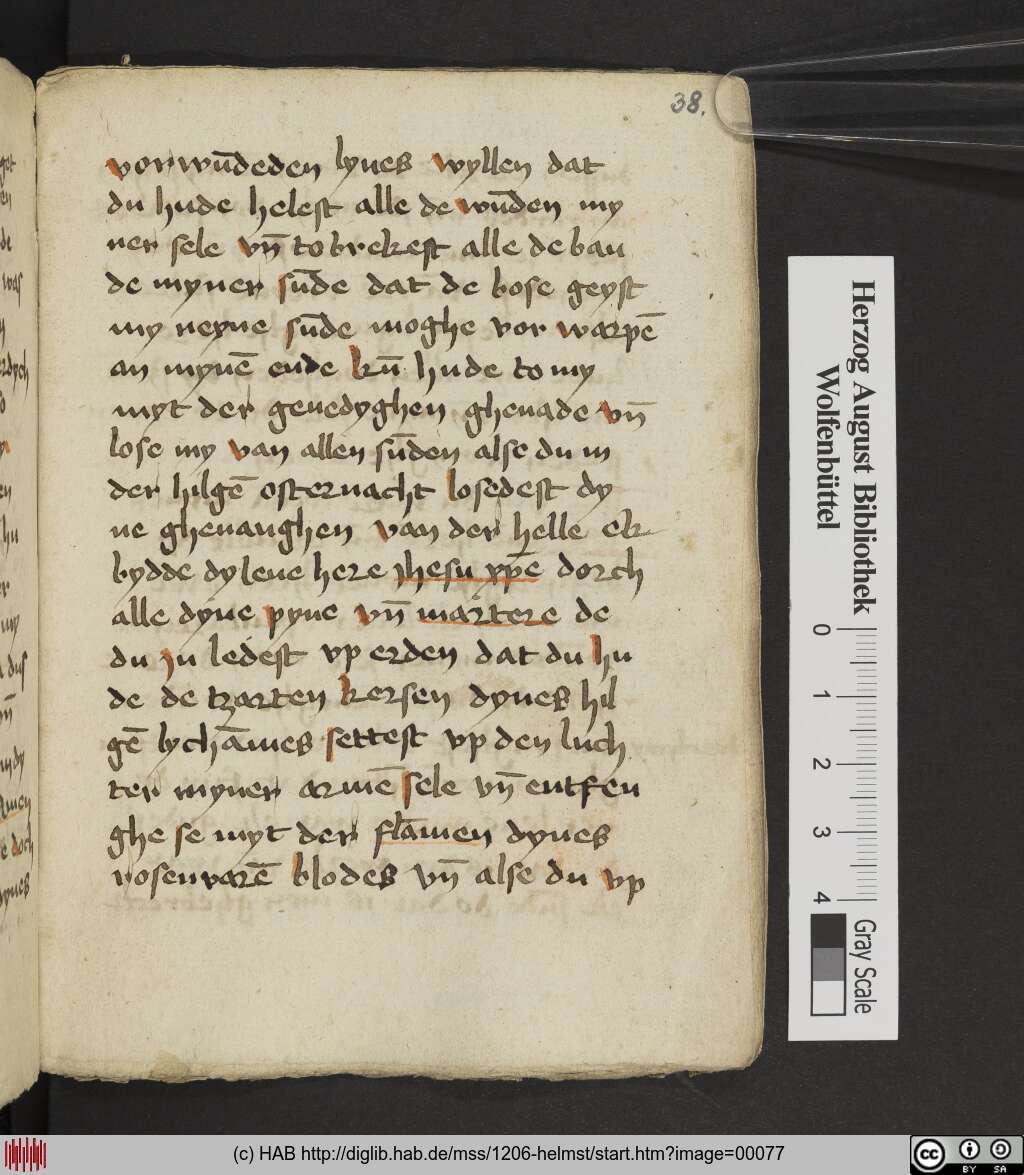 38.
vorwūdeden lyues wyllen dat
du hude helest alle de wūden my
ner sele vn̄ to brekest alle de ban
de myner sūde dat de bose geyst
my neyne sūde moghe vor warpē
an mynē ende kū hude to my
myt der genedyghen ghenade vn̄
lose my van allen sūden alse du in
der hilgē osternacht losedest dy
ne ghenanghen van der helle ek
bydde dy leue here jhesu xp̄e dorch
alle dyne pyne vn̄ martere de
du ju ledest vp erden dat du hu
de de tzarten kersen dynes hil
gē lychāmes settest vp den luch
ter myner armē sele vn̄ entfen
ghe se myt der flāmen dynes
rosenvarē blodes vn̄ alse du vp
Herzog August Bibliothek
Wolfenbüttel
0 1 2 3 4
Gray Scale
(c) HAB http://diglib.hab.de/mss/1206-helmst/start.htm?image=00077
cc BY SA